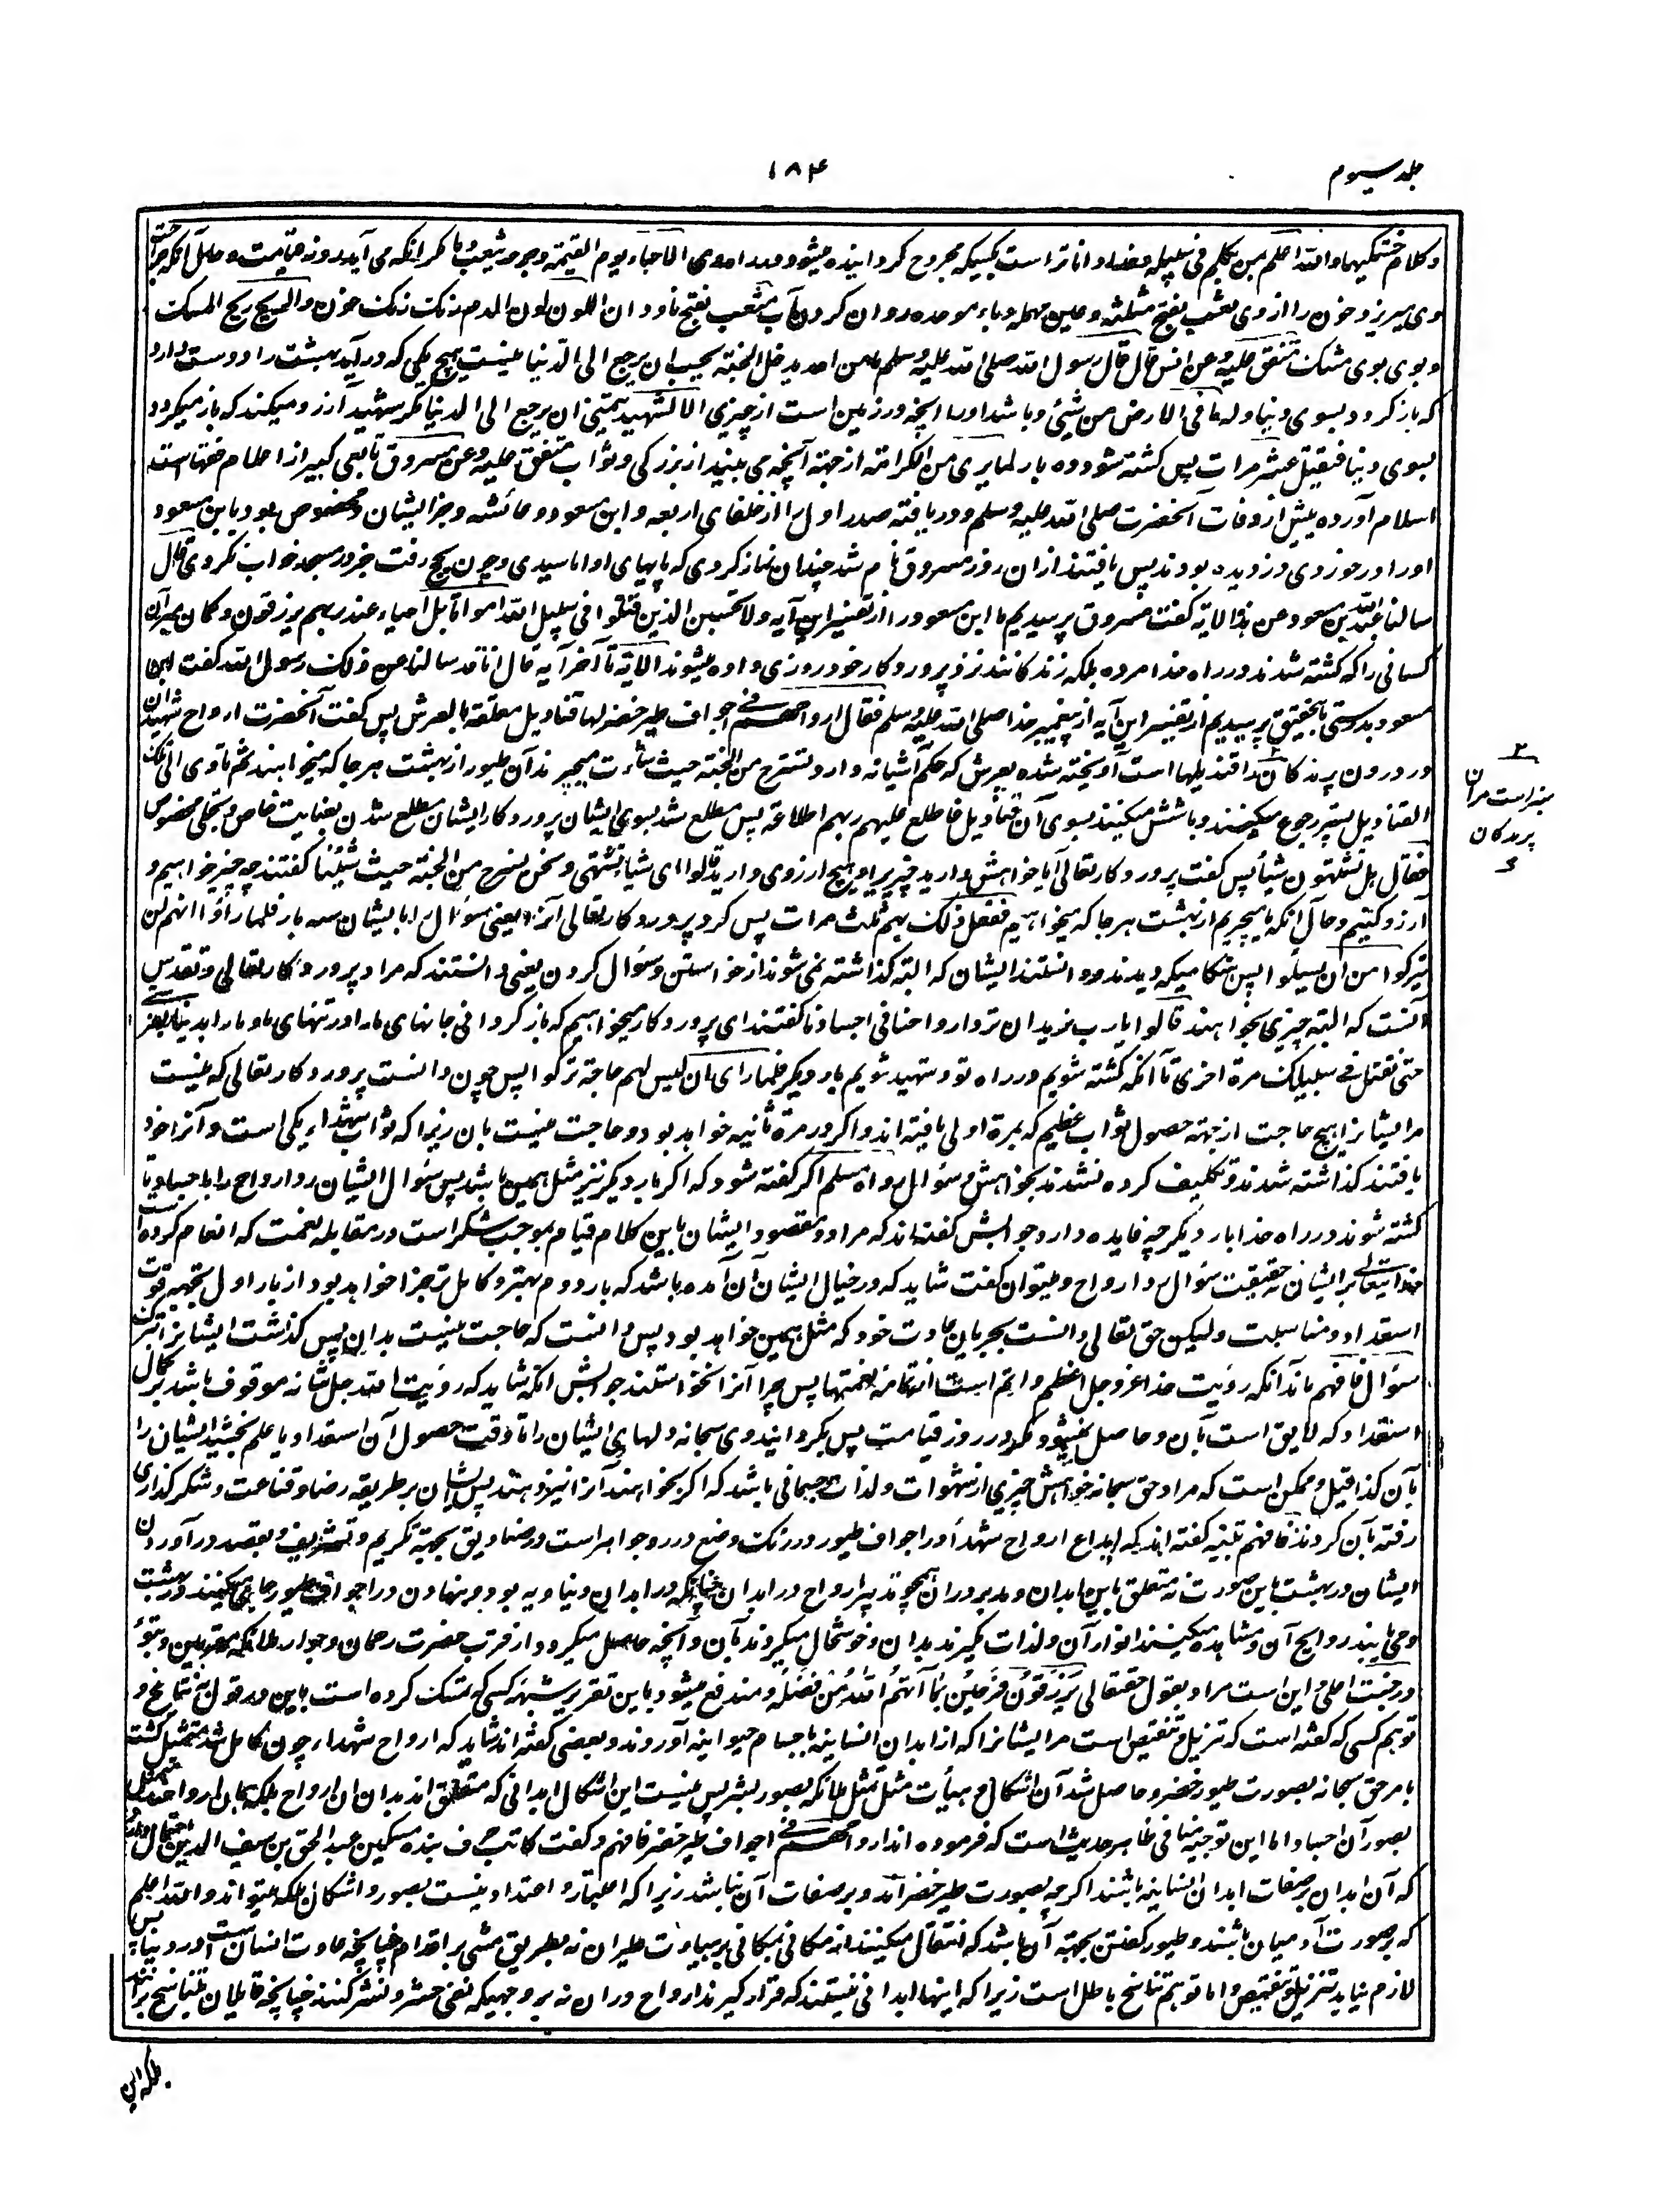 جلد سیوم
۱۸۴
وکلام خستگیها والله اعلم بمن یکلم فی سبیله وخدا داناتر است بکسیکه مجروح گردانیده میشود در راه وی الا جاء یوم القیمة وجرحه یثعب دما مگر آنکه می آید روز قیامت وحال آنکه جراحت
وی میریزد خون را از وی یثعب بفتح مثلثه وعین مهمله وباء موحده روان کردن آب مثعب بفتح ناودان اللون لون الدم رنگ رنگ خون والریح ریح المسک
وبوی بوی مشک متفق علیه وعن انس قال قال رسول الله صلی الله علیه وسلم ما من احد یدخل الجنة یحب ان یرجع الی الدنیا نیست هیچ یکی که در آید بهشت را دوست دارد
که باز گردد بسوی دنیا وله ما فی الارض من شیٔ وباشد او را آنچه در زمین است از چیزی الا الشهید یتمنی ان یرجع الی الدنیا مگر شهید آرزو میکند که باز میگردد
بسوی دنیا فیقتل عشر مرات پس کشته شود ده بار لما یری من الکرامة از جهة آنچه می بیند از بزرگی وثواب متفق علیه وعن مسروق تابعی کبیر از اعلام فقهاست
اسلام آورده پیش از وفات آنحضرت صلی الله علیه وسلم ودریافته صدر اول را از خلفای اربعه وابن مسعود وعائشه وجز ایشان ومخصوص بود بابن مسعود
او را در خوردی دزدیده بودند پس یافتند ازان روز مسروق نام شد چندان نماز کردی که پایهای او اماسیدی وچون بحج رفت جز در مسجد خواب نکردی قال
سالنا عبد الله بن مسعود عن هذه الایة گفت مسروق پرسیدیم ما ابن مسعود را از تفسیر این آیه ولا تحسبن الذین قتلوا فی سبیل الله امواتا بل احیاء عند ربهم یرزقون وگمان مبر آن
کسانی را که کشته شدند در راه خدا مرده بلکه زندگانند نزد پروردگار خود روزی داده میشوند الایة تا آخر آیه قال انا قد سالنا عن ذلک رسول الله گفت ابن
مسعود بدرستی بتحقیق پرسیدیم از تفسیر این آیه از پیغمبر خدا صلی الله علیه وسلم فقال ارواحهم فی اجواف طیر خضر لها قنادیل معلقة بالعرش پس گفت آنحضرت ارواح شهیدان
در درون پرندگان را قندیلها است آویخته شده بعرش که حکم آشیانه دارد تسرح من الجنة حیث شاءت میچرند آن طیور از بهشت هر جا که میخواهند ثم تاوی الی تلک
القنادیل پستر رجوع میکنند وباشش میکنند بسوی آن قنادیل فاطلع علیهم ربهم اطلاعة پس مطلع شد بسوی ایشان پروردگار ایشان مطلع شدن بعنایت خاص وتجلی مخصوص
فقال هل تشتهون شیأ پس گفت پروردگار تعالی آیا خواهش دارید چیزیرا وهیچ آرزوی دارید قالوا ای شیٔ نشتهی ونحن نسرح من الجنة حیث شئنا گفتند چه چیز خواهیم و
آرزو کنیم وحال آنکه ما میچریم از بهشت هر جا که میخواهیم ففعل ذلک بهم ثلث مرات پس کرد پروردگار تعالی آنرا یعنی سؤال را بایشان سه بار فلما راوا انهم لن
یترکوا من ان یسئلوا پس هنگامیکه دیدند ودانستند ایشان که البته گذاشته نمی شوند از خواستن وسؤال کردن یعنی دانستند که مراد پروردگار تعالی وتقدس
آنست که البته چیزی بخواهند قالوا یا رب نرید ان ترد ارواحنا فی اجسادنا گفتند ای پروردگار میخواهیم که باز گردانی جانهای ما در تنهای ما وما را بدنیا بفرستی
حتی نقتل فی سبیلک مرة اخری تا آنکه کشته شویم در راه تو وشهید شویم بار دیگر فلما رای ان لیس لهم حاجة ترکوا پس چون دانست پروردگار تعالی که نیست
مر ایشانرا هیچ حاجت از جهة حصول ثواب عظیم که بمرة اولی یافته اند واگر در مرة ثانیه خواهد بود وحاجت نیست بان زیرا که ثواب شهداء یکی است وآنرا خود
یافتند گذاشته شدند وتکلیف کرده نشدند بخواهش وسؤال رواه مسلم اگر گفته شود که اگر بار دیگر نیز مثل همین باشد پس سؤال ایشان رد ارواح را باجساد وتا
کشته شوند در راه خدا بار دیگر چه فایده دارد جوابش گفته اند که مراد ومقصود ایشان باین کلام قیام بموجب شکر است در مقابله نعمت که انعام کرده است
خدایتعالی برایشان نه حقیقت سؤال رد ارواح ومیتوان گفت شاید که در خیال ایشان آن آمده باشد که بار دوم بهتر وکامل تر جزا خواهد بود از بار اول بجهة قوت
استعداد ومناسبت ولیکن حق تعالی دانست بجریان عادت خود که مثل همین خواهد بود پس دانست که حاجت نیست بدان پس گذاشت ایشانرا بترک
سؤال فافهم ماند آنکه رؤیت خدا عز وجل اعظم واتم است از تمامه نعمتها پس چرا آنرا نخواستند جوابش آنکه شاید که رؤیت الله جل شانه موقوف باشد بر کمال
استعداد که لایق است بآن وحاصل نمیشود مگر در روز قیامت پس بگردانید وی سبحانه دلهای ایشان را تا وقت حصول آن استعداد یا علم بخشید ایشان را
بآن کذا قیل وممکن است که مراد حق سبحانه خواهش چیزی از شهوات ولذات جسمانی باشد که اگر بخواهند آنرا نیز دهند پس ایشان بر طریقه رضا وقناعت وشکر گذاری
رفته بآن کردند فافهم تنبیه گفته اند که ایداع ارواح شهدا در اجواف طیور در رنگ وضع درر وجواهر است در صنادیق بجهة تکریم وتشریف وبقصد در آوردن
ایشان در بهشت باین صورت نه متعلق باین ابدان ومدبر در آن همچو تدبیر ارواح در ابدان چنانکه در ابدان دنیاویه بود وبنهادن در اجواف طیور جای میکنند در بهشت
ومی یابند روایح آن ومشاهده میکنند انوار آن ولذات گیرند بدان وخوشحال میگردند بآن وآنچه حاصل میگردد از قرب حضرت رحمان وجوار ملائکه مقربین وتبوء
در جنت اعلی واین است مراد بقول حقتعالی یرزقون فرحین بما آتهم الله من فضله ومندفع میشود باین تقریر شبهه کسی که تمسک کرده است باین در قول به تناسخ و
توهم کسی که گفته است که تنزیل وتنقیص است مر ایشانرا که از ابدان انسانیه باجسام حیوانیه آوردند وبعضی گفته اند شاید که ارواح شهداء چون کامل شد متمثل گشت
بامر حق سبحانه بصورت طیور خضر وحاصل شد آن اشکال وهیأت مثل تمثل ملائکه بصور بشر پس نیست این اشکال ابدانی که متعلق اند بدان ان ارواح بلکه همان ارواح متمثل
بصور آن اجساد اما این توجیه منافی ظاهر حدیث است که فرموده اند ارواحهم فی اجواف طیر خضر فافهم وگفت کاتب حرف بنده مسکین عبد الحق بن سیف الدین
که آن ابدان بر صفات ابدان انسانیه باشند اگرچه بصورت طیر خضر آمد وبر صفات آن نباشد زیرا که اعتبار واعتداد نیست بصور واشکال بلکه میتواند والله اعلم
که بصورت آدمیان باشند وطیور گفتن بجهة آن باشد که انتقال میکنند از مکانی بمکانی بر هیأت طیران نه بطریق مشی بر اقدام چنانچه عادت انسان ست در دنیا پس
لازم نیاید تنزیل وتنقیص واما توهم تناسخ باطل است زیرا که اینها ابدانی نیستند که قرار گیرند ارواح در ان نه بر وجهیکه نفی حشر ونشر کنند چنانچه قائلان بتناسخ
سبز است مر آن
پرندگان
بلکه این